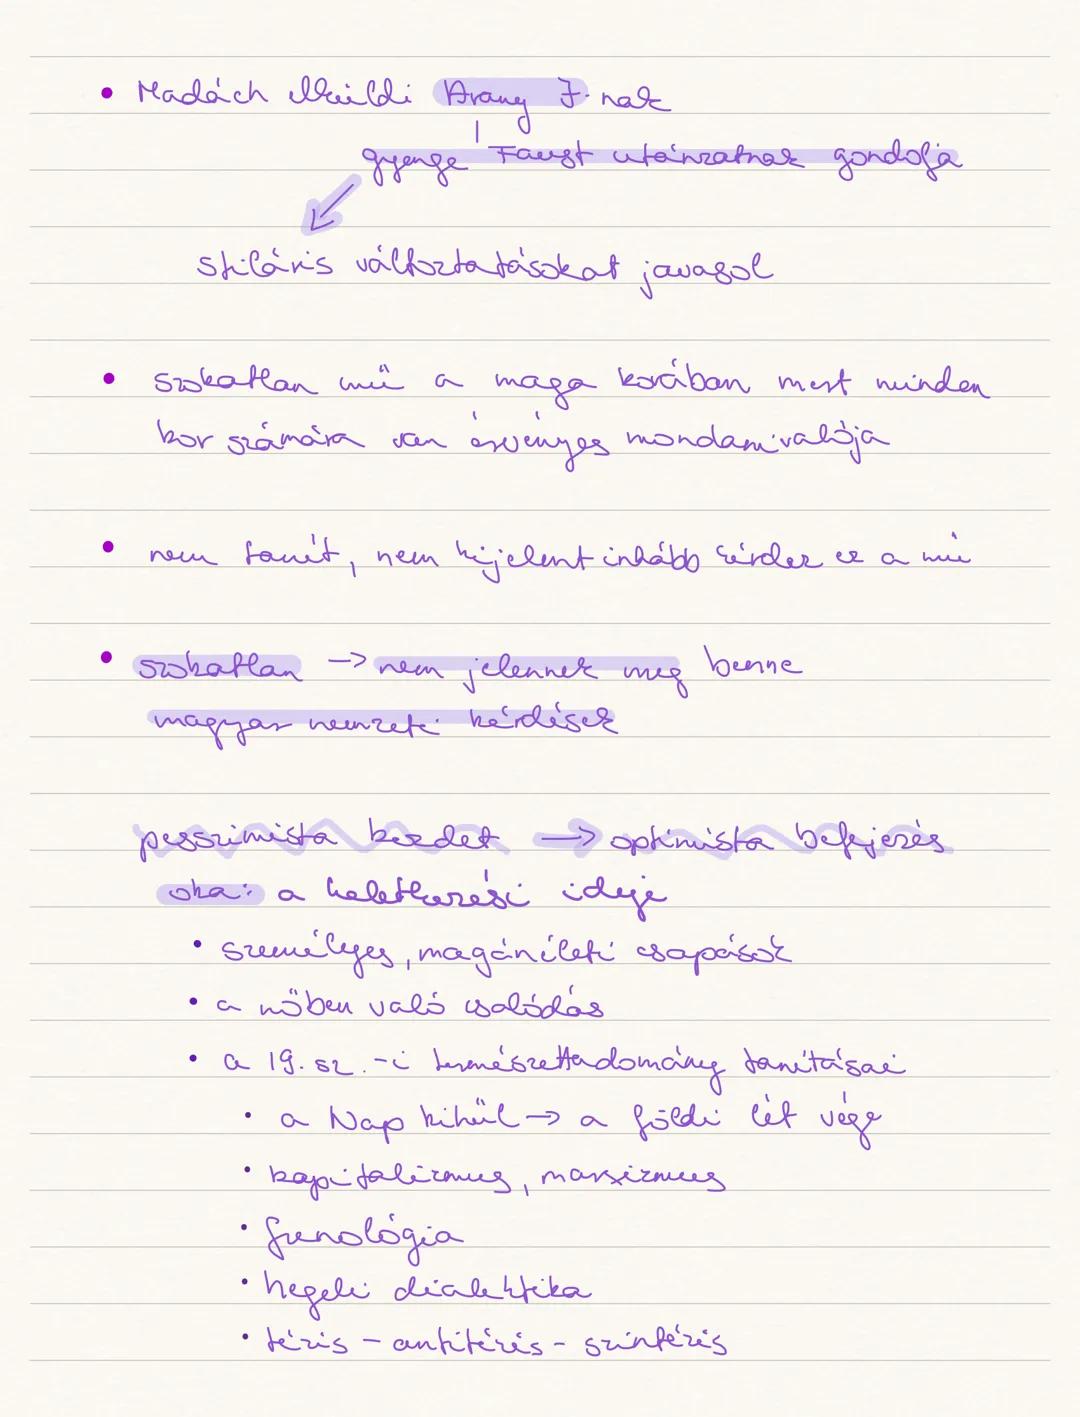 • Madách elküldi Arany J.-nak
gyenge Faust utánzatnak gondolja
stiláris változtatásokat javasol
• szokatlan mű a maga korában mert minden
kor számára van érvényes mondanivalója
• nem tanít, nem kijelent inkább kérdez ez a mű
• szokatlan -> nem jelennek meg benne
magyar nemzeti kérdések
pesszimista kezdet -> optimista befejezés
oka: a keletkezési ideje
• személyes, magánéleti csapások
• a nőben való csalódás
• a 19. sz.-i természettudomány tanításai
• a Nap kihűl -> a földi lét vége
• kapitalizmus, marxizmus
• frenológia
• hegeli dialektika
• tézis - antitézis - szintézis